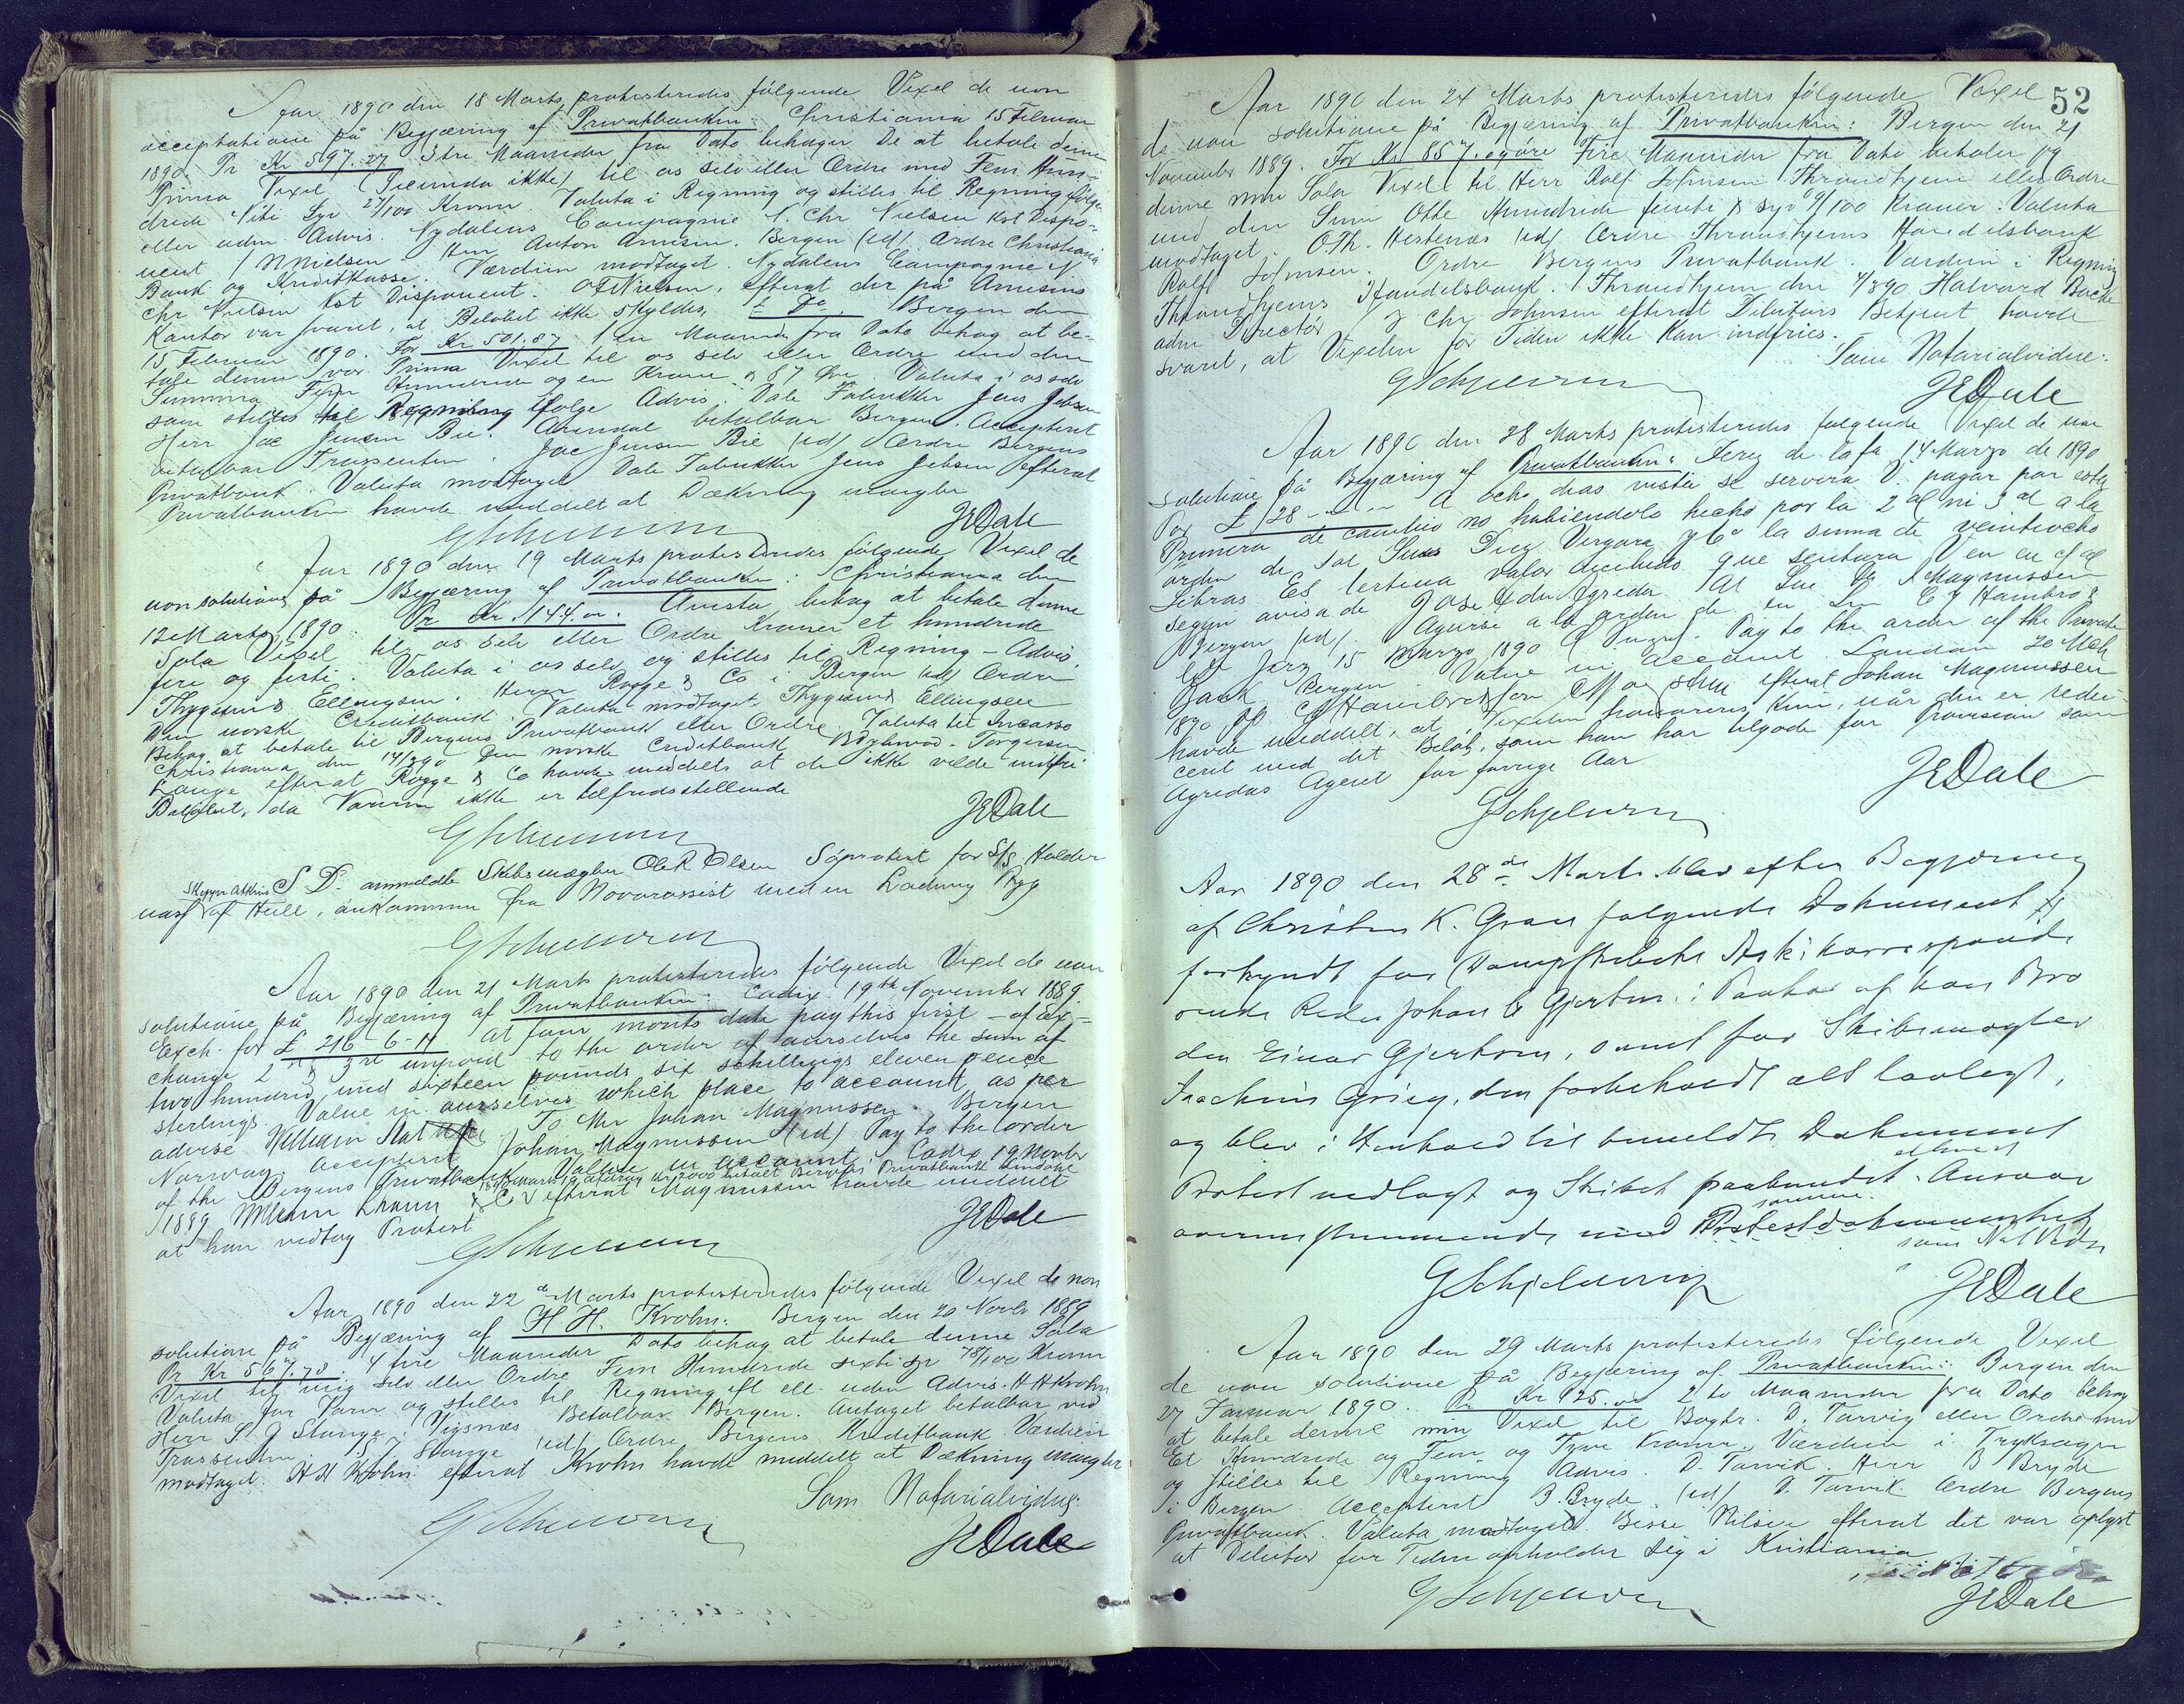 Aar 1890 den 18 Marts protesteredes følgende Vexel de non
acceptatione på Begjæring af Privatbanken: Christiania 15 Februar
1890. Pr Kr 597.27 3 tre Maaneder fra Dato behager De at betale denne
Prima Vexel (Secunda ikke) til os selv eller Ordre med Fem Hun-
drede Niti Syv 27/100 Kroner. Valuta i Regning og stilles til Regning ifølge
eller uden Advis. Nydalens Compagnie N. Chr Nielsen kst Dispo-
nent / N Nielsen. Herr Anton Arnesen. Bergen (ed) Ordre Christiania
Bank og Kreditkasse. Værdien modtaget. Nydalens Compagnie N
Chr Nielsen kst Disponent. Nielsen, efterat der på Arnesens
Kontor var svaret, at Beløbet ikke skyldes. £ Do. Bergen den
15 Februar 1890. For Kr 501.87 1 en Maaned fra Dato behag at be-
tale denne vor Prima Vexel til os selv eller Ordre med den
Summa Fem Hundrede og en Krone & 87 Øre Valuta i os selv
som stilles til Regning ifølge Advis. Dale Fabrikker Jens Jebsen
Herr Jac Jensen Bie. Arendal betalbar Bergen. Accepteret
betalbar Trassenten. Jac Jensen Bie (ed) Ordre Bergens
Privatbank. Valuta modtaget Dale Fabrikker Jens Jebsen efterat
Privatbanken havde meddelt at Dækning mangler
GSchjelderup JEDale
Aar 1890 den 19 Marts protesteredes følgende Vexel de
non solutione på Begjæring af Privatbanken: Christiania den
12 Marts 1890. Pr Kr 144.00. Avista behag at betale denne
Sola Vexel til os selv eller Ordre Kroner et hundrede
fire og firti. Valuta i os selv og stilles til Regning - Advis.
Thygesen & Ellingsen. Herrer Rogge & Co i Bergen (ed) Ordre
Den norske Creditbank. Valuta modtaget Thygesen & Ellingsen
Behag at betale til Bergens Privatbank eller Ordre. Valuta til Incasso
Christiania den 14/3 90 Den norske Creditbank Torgersen
Lange efterat Rogge & Co havde meddelt at de ikke vilde indfri
Beløbet, da Varerne ikke er tilfredsstillende
GSchjelderup JEDale
S D. anmeldte Skibsmægler Ole R Olsen Søprotest for S/S Holder
ness Skipper Atkins af Hull, ankommen fra Novorossisk med en Ladning Byg
GSchjelderup
Aar 1890 den 21 Marts protesteredes følgende Vexel de non
solutione på Begjæring af Privatbanken: Cadix 19th November 1889.
Exch. for £ 216-6-11 At four monts date pay this first - of ex-
change 2nd & 3rd unpaid to the order of ourselves the sum of
two hundred and sixteen pounds six schellings eleven pence
sterlings. Value in ourselves which place to account as per
advise William To Mr Johan Magnussen. Bergen
Norway. Accepteret Johan Magnussen (ed) Pay to the order
of the Bergens Privatbank Value in account. Cadix 19 Novbr
1889 William & Co efterat Magnussen havde meddelt
at han vedtog Protest
GSchjelderup JEDale
Aar 1890 den 22de Marts protesteredes følgende Vexel de non
solutione på Begjæring af H H. Krohn: Bergen den 20 Novbr 1889
Pr Kr 567.78. 4 fire Maaneder Dato behag at betale denne Sola
Vexel til mig selv eller Ordre Fem Hundrede sexti syv 78/100 Kroner
Valuta for Varer og stilles til Regning ifl ell. uden Advis. H H Krohn
Herr S. J Stange i Vigsnæs Betalbar Bergen. Antaget betalbar ved
Trassenten S J Stange (ed) Ordre Bergens Kreditbank. Værdien
modtaget. H H Krohn. efterat Krohn havde meddelt at Dækning mangler
Som Notarialvidne:
GSchjelderup JEDale
52
Aar 1890 den 24 Marts protesteredes følgende Vexel
de non solutione på Begjæring af Privatbanken: Bergen den 21
November 1889. For Kr 857.09 øre Fire Maaneder fra Dato betaler jeg
denne min Sola Vexel til Herr Rolf Johnsen Throndhjem eller Ordre
med den Sum Otte Hundrede femti & syv 9/100 Kroner. Valuta
modtaget. O.Th. Hestenæs (ed) Ordre Throndhjems Handelsbank
Rolf Johnsen. Ordre Bergens Privatbank. Værdien i Regning
Throndhjems Handelsbank. Throndhjem den 4/3 90. Halvard Backe
adm Directør J Chr Johnsen efterat Debitors Betjent havde
svaret, at Vexelen for Tiden ikke kan indfries.
Som Notarialvidne:
GSchjelderup JEDale
Aar 1890 den 28 Marts protesteredes følgende Vexel de non
solutione på Begjæring af Privatbanken: Jerez de la fa 14 Marzo de 1890
Por £ 28 - - A ocho dias vista se servira V. pagar por esta
Primera de cambio no habiendolo hecho por la 2a ni 3a a la
orden de Diez Vergara y Ca la suma de veintiocho
Libras Es. terlina valor recibido que sentara V en cuenta
segun avisa de Jose de Agreda Al Magnussen
Bergen (ed). Paguese a la orden de C J Hambro &
Jerez 15 Marzo 1890 Pay to the order of the Private
Bank Bergen. Value in account. London 20 Mch
1890 pp C J Hambro & Son efterat Johan Magnussen
havde meddelt, at Vexelen honoreres kun, når den er redu-
ceret med det Beløb, som han har tilgode for Provision som
Agredas Agent for forrige Aar
GSchjelderup JEDale
Aar 1890 den 28de Marts blev efter Begjæring
af Christen K. Gran følgende Dokument
forkyndt for Dampskibets Aski korrespond-
erende Reder Johan C Gjertsen i Paahør af hans Bro
der Einar Gjertsen, samt for Skibsmægler
Joachim Grieg, den forbeholdt alt lovlegt,
og blev i Henhold til bemeldte Dokument
Protest nedlagt og Skibet paabundet alt Ansvar
overensstemmende med samme Protestdokumentet
som Not Vidne
GSchjelderup JEDale
Aar 1890 den 29 Marts protesteredes følgende Vexel
de non solutione på Begjæring af Privatbanken: Bergen den
27 Januar 1890. Pr Kr 125.00 2 to Maaneder fra Dato behag
at betale denne min Vexel til Bogtr. D. Tarvig eller Ordre med
Et Hundrede og Fem og Tyve Kroner. Værdien i Tryksager
og stilles til Regning Advis. D. Tarvik. Herr B Bryde
i Bergen. Accepteret B. Bryde. (ed) D. Tarvik. Ordre Bergens
Privatbank. Valuta modtaget. Nilsen efterat det var oplyst
at Debitor for Tiden opholder sig i Kristiania
GSchjelderup JEDale